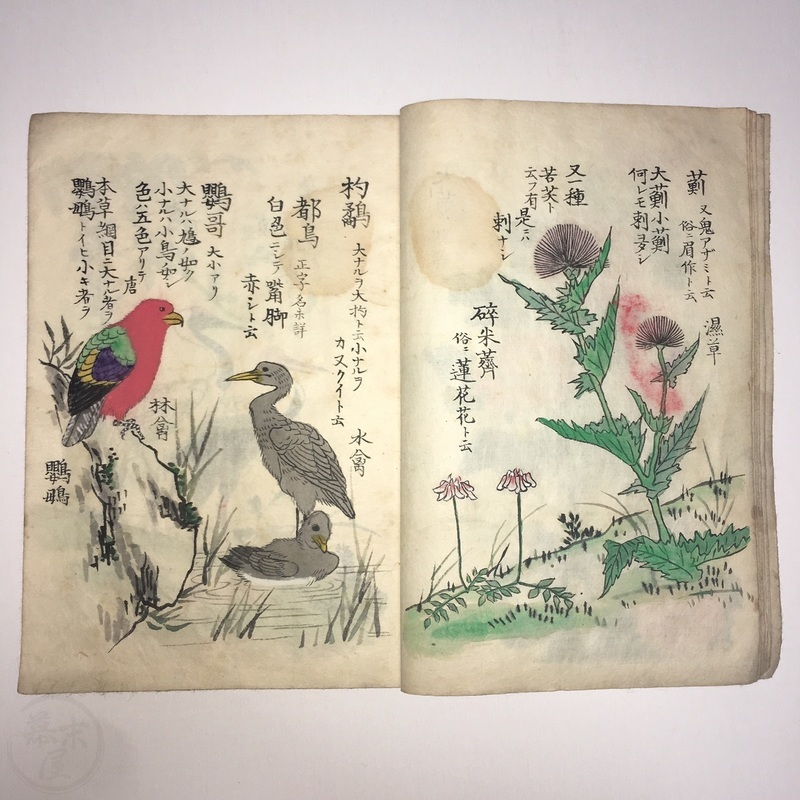 薊 又鬼アザミト云
俗ニ眉作ト云
大薊小薊
何レモ刺ヲヽシ
濕草
又一種
苦芺ト
云フ有是ニハ
刺ナシ
碎米薺
俗ニ蓮花花ト云
杓鷸 大ナルヲ大杓ト云小ナルヲ
カヌクイト云
水禽
都鳥 正字名未詳
白色ニシテ觜脚
赤シト云
鸚哥 大小アリ
大ナルハ鳩ノ如ク
小ナルハ小鳥ノ如シ
色ハ五色アリテ
唐
本草綱目ニ大ナル者ヲ
鸚䳇トイヒ小キ者ヲ
林禽
鸚䳇
幕末屋